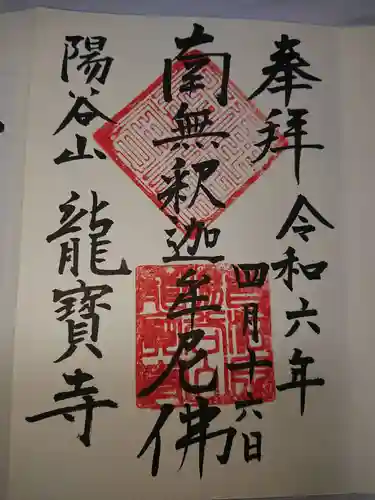 奉拜
令和六年
四月十六日
南無釈迦牟尼佛
陽谷山
龍寳寺